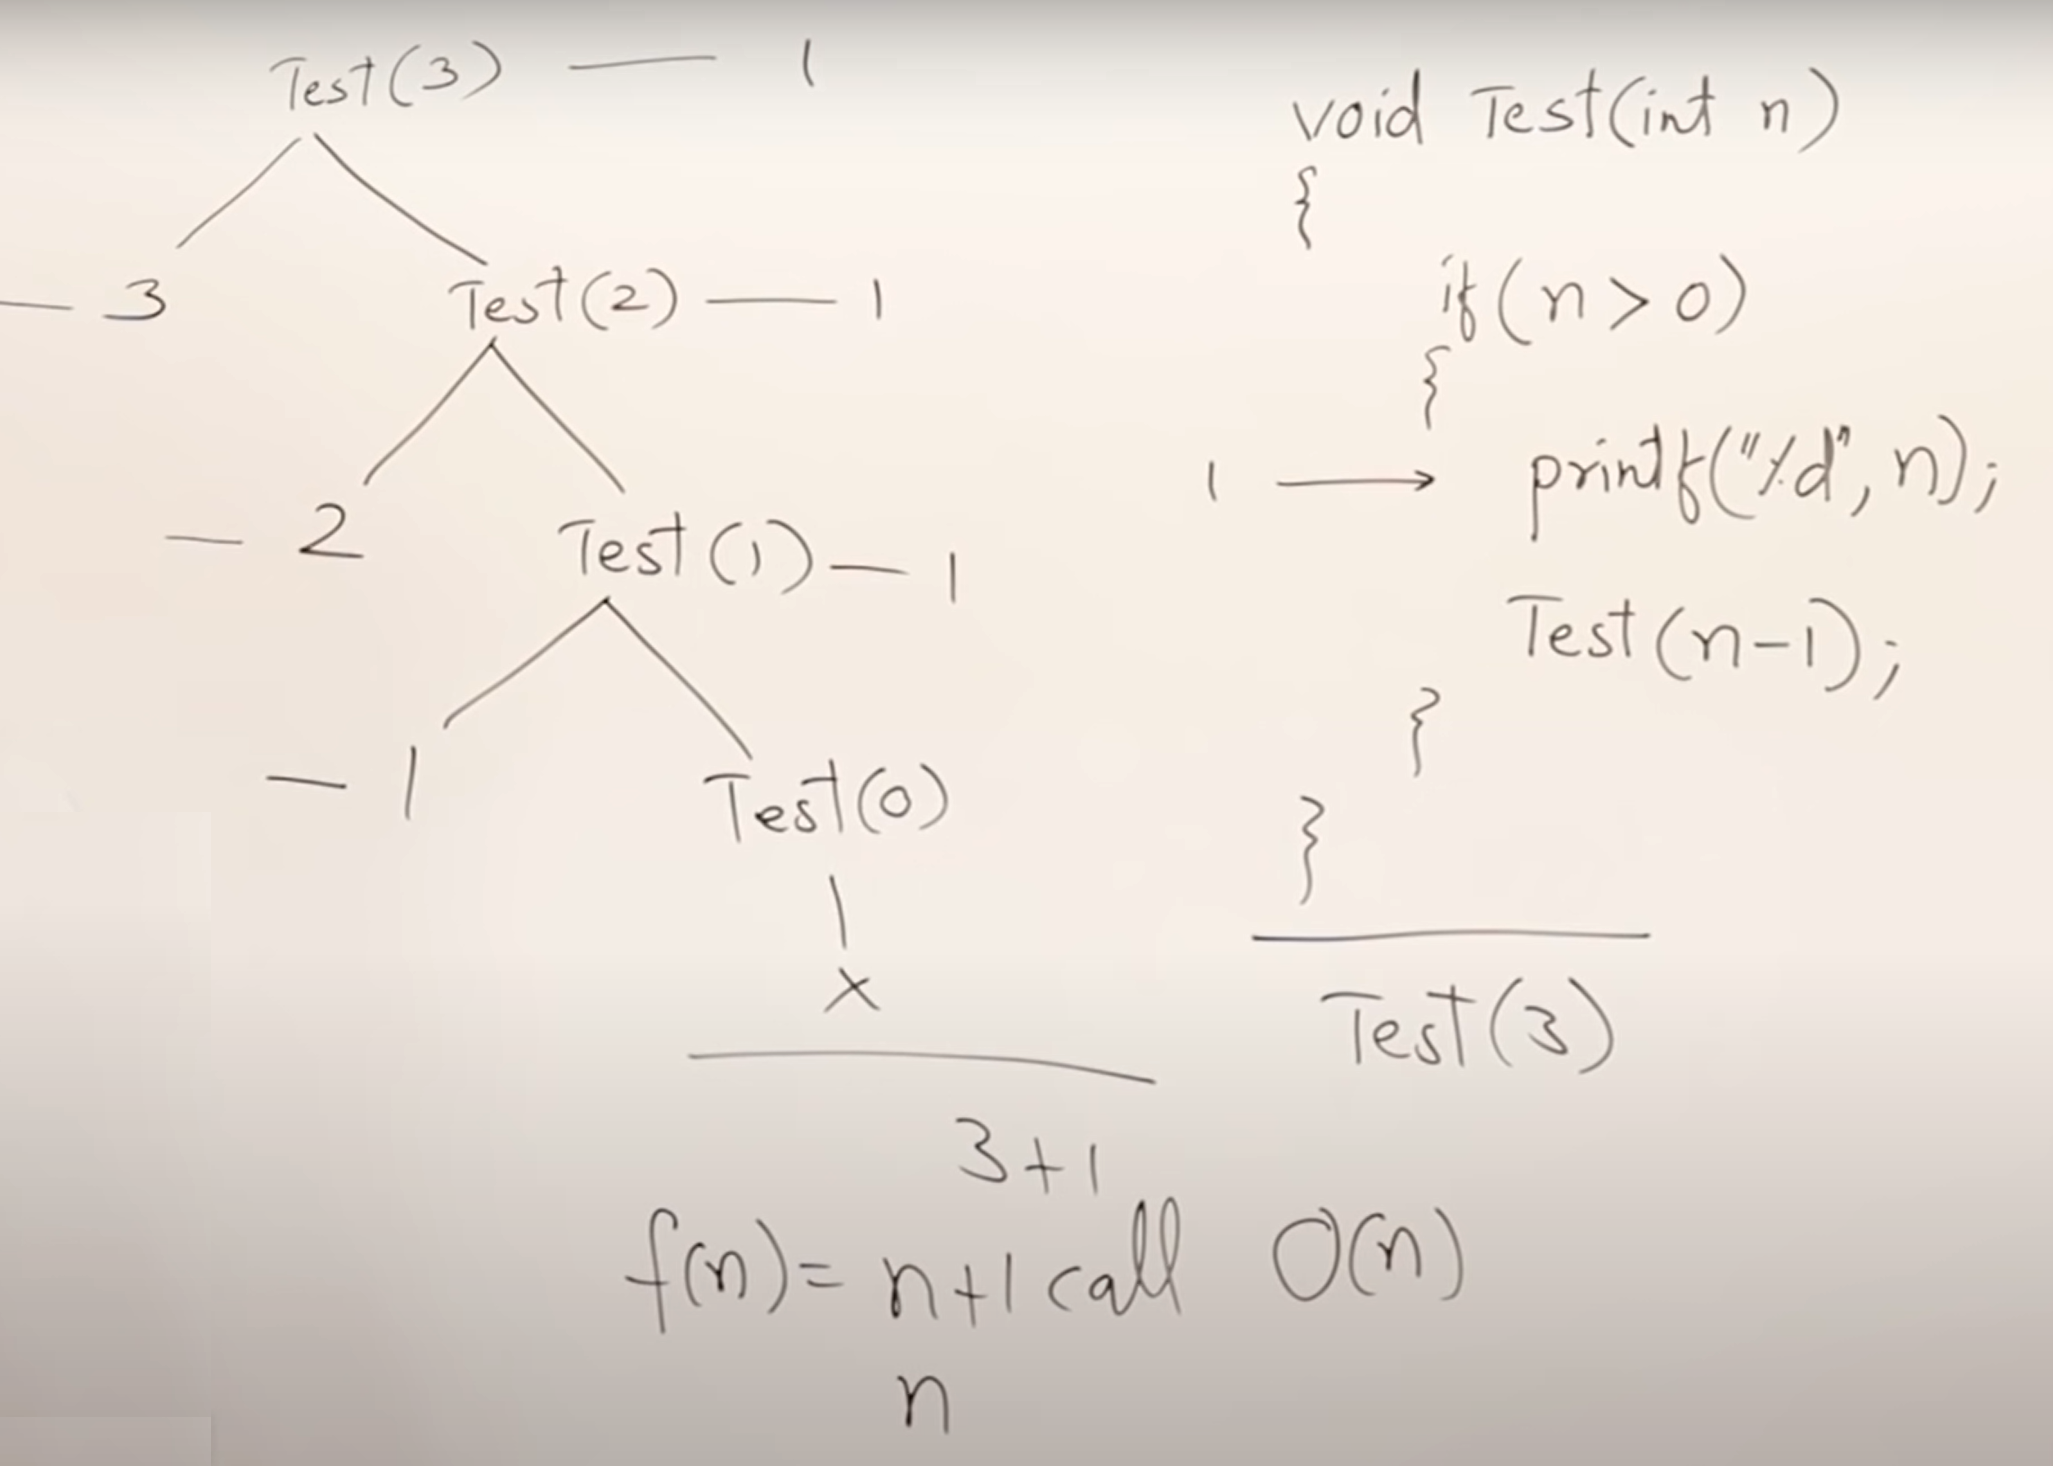 Test(3) — 1
— 3
Test(2) — 1
— 2
Test(1) — 1
— 1
Test(0)
×
3+1
f(n) = n+1 call O(n)
n
void Test(int n)
{
if(n>0)
{
1 → printf("%d", n);
Test(n-1);
}
}
Test(3)